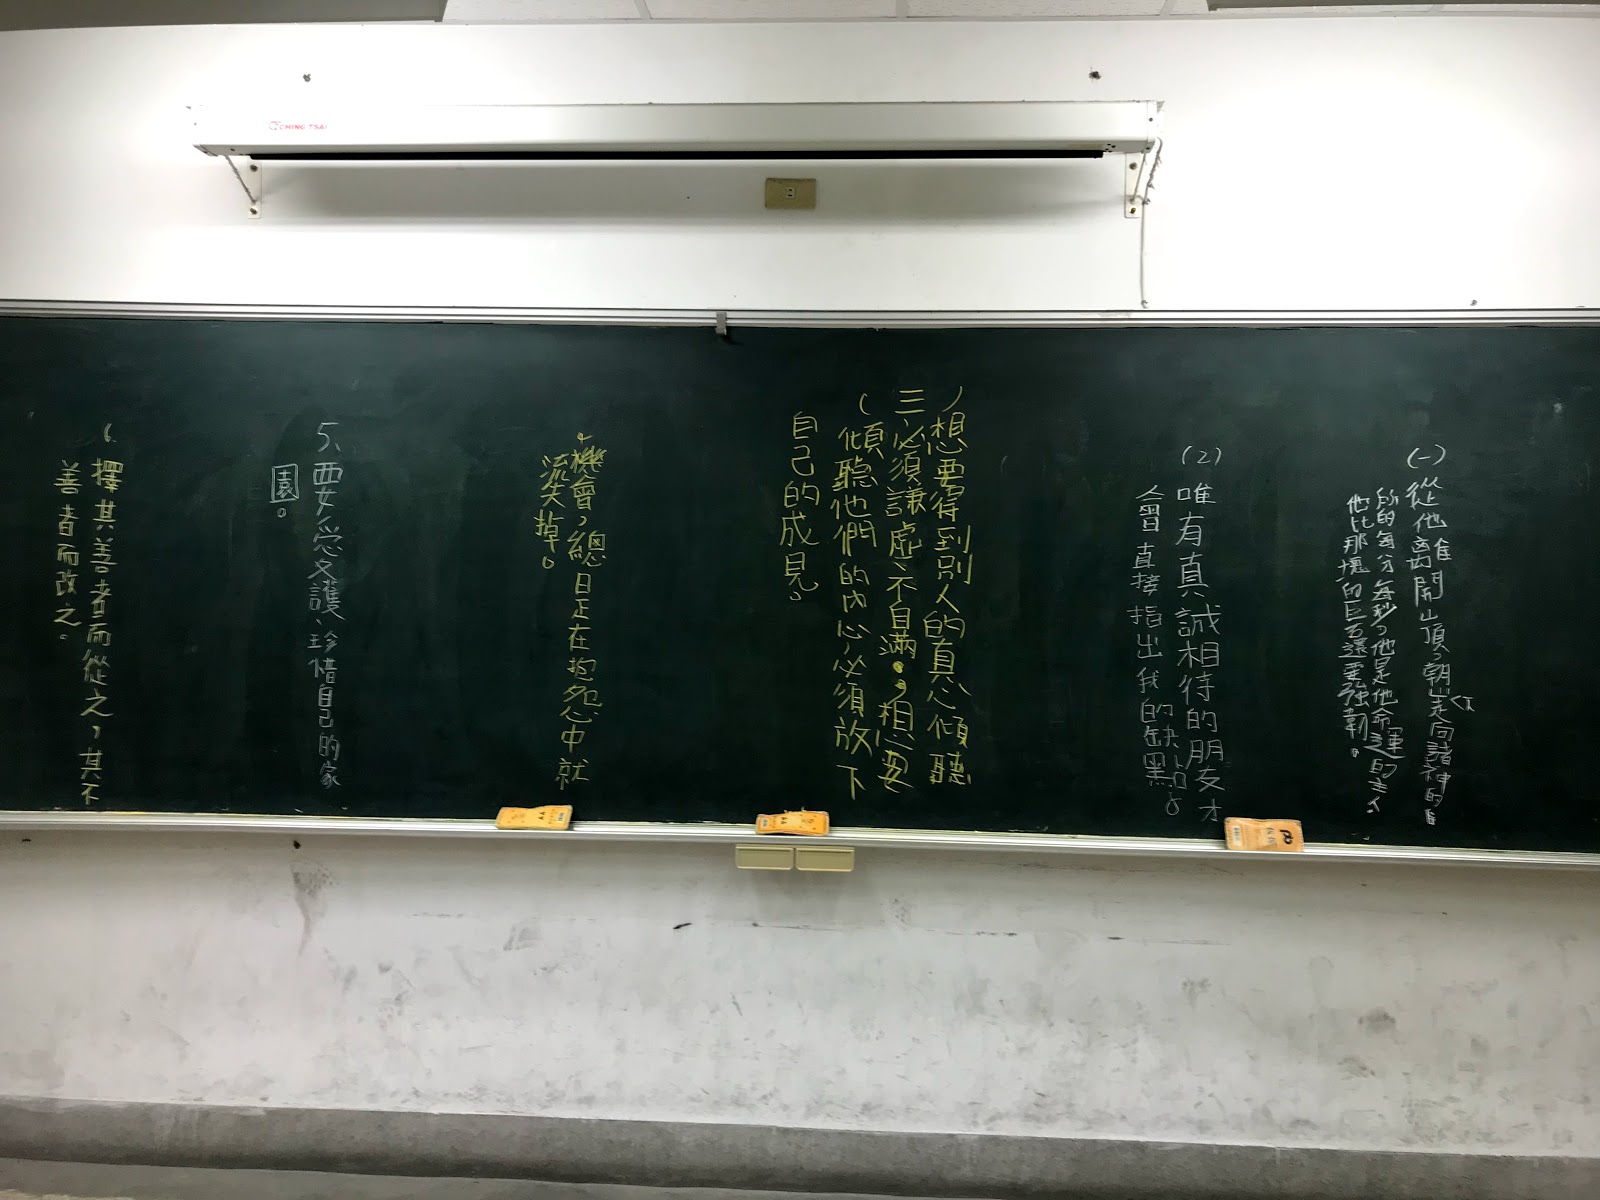 CHING TSAI
(一)
從他離開山頂，朝走向諸神的
所的每分每秒，他是他命運的主人。
他比那塊的巨石還要強韌。
(2)
唯有真誠相待的朋友才
會直接指出我的缺點。
想要得到別人的真心傾聽
三、必須謙虛不自滿。，想要
傾聽他們的內心，必須放下
自己的成見。
機會，總日正在抱怨中就
流失掉。
5、
要受文護、珍惜自己的家
園。
擇其善者而從之，其不
善者而改之。